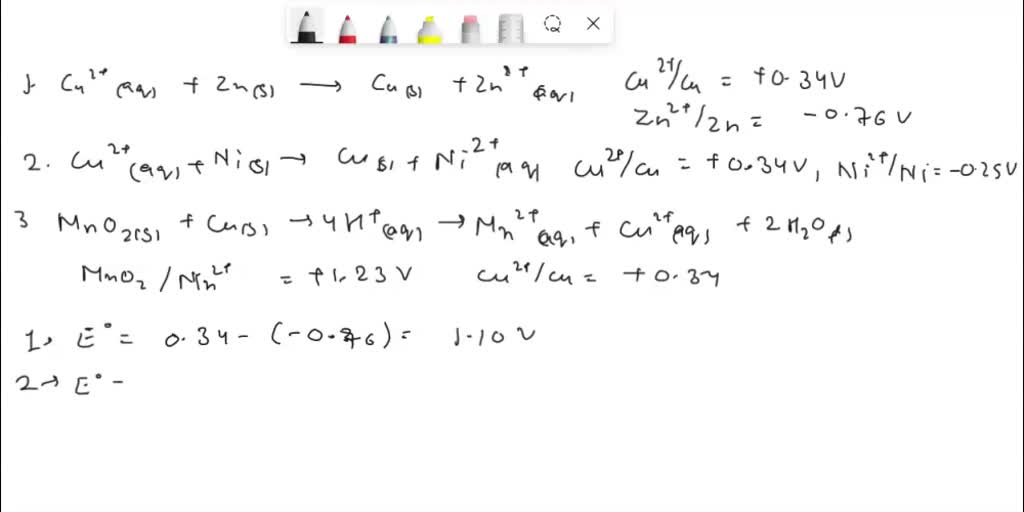 1. Cu²⁺(aq) + Zn(s) → Cu(s) + Zn²⁺(aq) Cu²⁺/Cu = +0.34V
Zn²⁺/Zn = -0.76 V
2. Cu²⁺(aq) + Ni(s) → Cu(s) + Ni²⁺(aq) Cu²⁺/Cu = +0.34V, Ni²⁺/Ni = -0.25V
3 MnO₂(s) + Cu(s) → 4H⁺(aq) → Mn²⁺(aq) + Cu²⁺(aq) + 2H₂O(l)
MnO₂/Mn²⁺ = +1.23 V Cu²⁺/Cu = +0.34
1. E° = 0.34 - (-0.76) = 1.10 V
2→ E° -